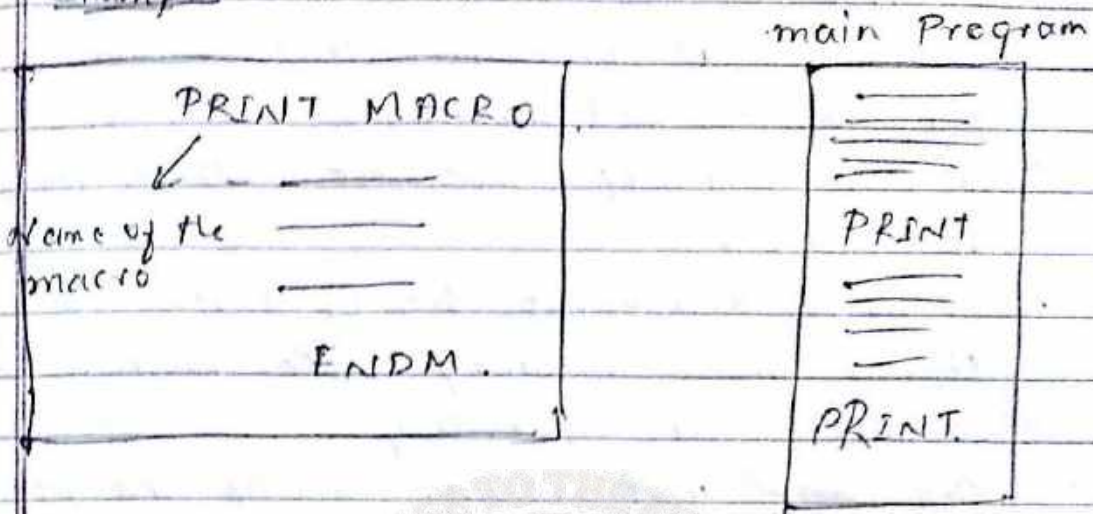 main Program
PRINT MACRO
Name of the
macro
ENDM.
PRINT
PRINT.